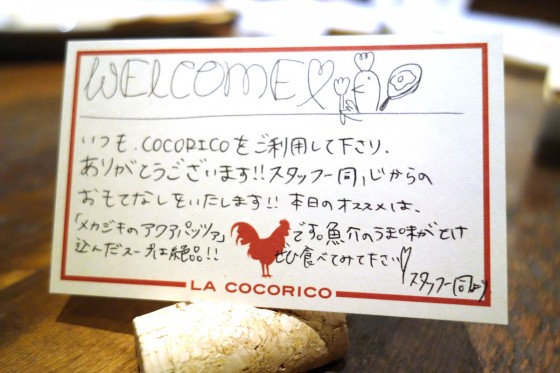 WELCOME♡
いつも、COCORICOをご利用して下さり、
ありがとうございます!!スタッフ一同、心からの
おもてなしをいたします!!本日のオススメは、
「メカジキのアクアパッツァ」です。魚介のうま味がとけ
込んだスープは絶品!!ぜひ食べてみて下さい♡
スタッフ一同より
LA COCORICO